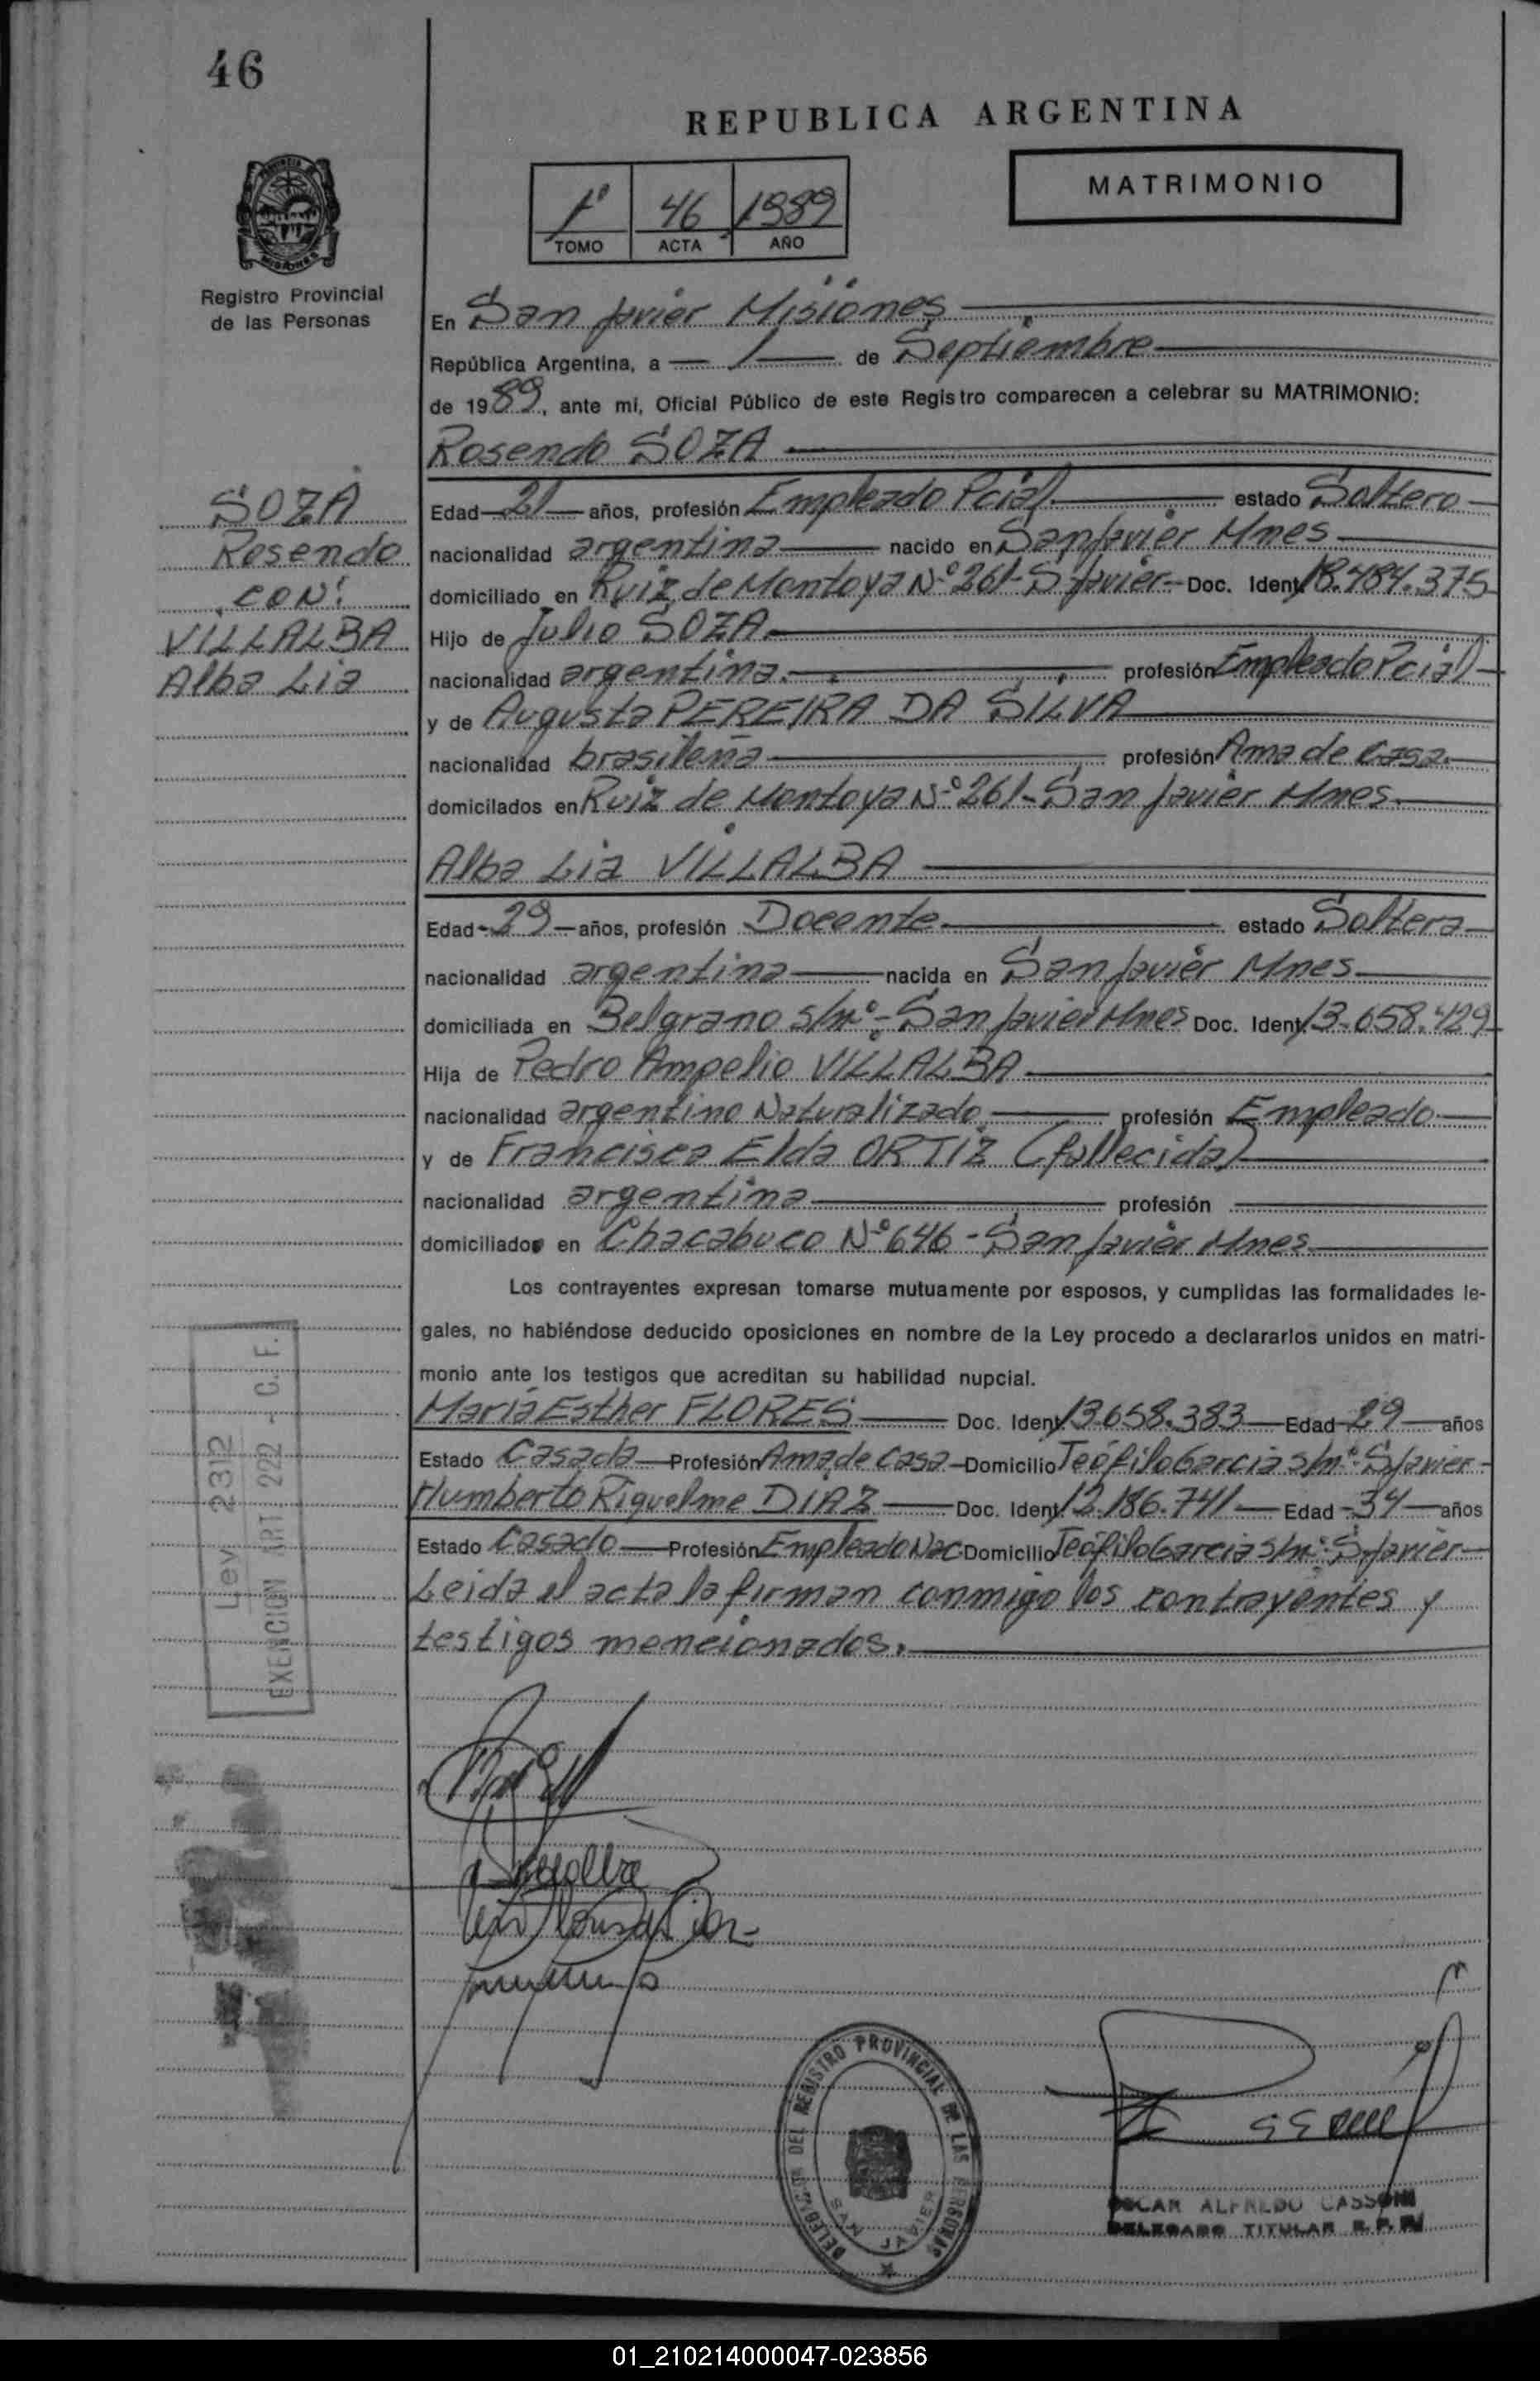 46
REPUBLICA ARGENTINA
MATRIMONIO
1º 46 1989
TOMO ACTA AÑO
PROVINCIA DE
MISIONES
Registro Provincial
de las Personas
En San Javier Misiones
República Argentina, a 1 de Septiembre
de 1989, ante mí, Oficial Público de este Registro comparecen a celebrar su MATRIMONIO:
Rosendo SOZA
SOZA
Rosendo
CON:
VILLALBA
Alba Lia
Edad 21 años, profesión Empleado Pcial estado Soltero
nacionalidad argentina nacido en San Javier Mnes
domiciliado en Ruiz de Montoya Nº 261-S Javier- Doc. Ident. 18.484.375
Hijo de Julio SOZA
nacionalidad argentina. profesión Empleado Pcial
y de Augusta PEREIRA DA SILVA
nacionalidad brasileña profesión Ama de Casa
domicilados en Ruiz de Montoya Nº 261-San Javier Mnes.
Alba Lia VILLALBA
Edad 29 años, profesión Docente estado Soltera
nacionalidad argentina nacida en San Javier Mnes
domiciliada en Belgrano s/nº-San Javier Mnes Doc. Ident. 13.658.429
Hija de Pedro Ampelio VILLALBA
nacionalidad argentino Naturalizado profesión Empleado
y de Francisca Elda ORTIZ (fallecida)
nacionalidad argentina profesión
domiciliados en Chacabuco Nº 646-San Javier Mnes
Los contrayentes expresan tomarse mutuamente por esposos, y cumplidas las formalidades le-
gales, no habiéndose deducido oposiciones en nombre de la Ley procedo a declararlos unidos en matri-
monio ante los testigos que acreditan su habilidad nupcial.
María Esther FLORES Doc. Ident. 13.658.383 Edad 29 años
Estado Casada Profesión Ama de Casa Domicilio Teófilo Garcia s/nº S Javier
Humberto Riquelme DIAZ Doc. Ident. 12.186.741 Edad 34 años
Estado Casado Profesión Empleado Nac Domicilio Teófilo Garcia s/nº S Javier
Leida el acta la firman conmigo los contrayentes y
testigos mencionados.
Ley 2312
EXENCION ART 222 - C.F.
DELEGACION DEL REGISTRO PROVINCIAL DE LAS PERSONAS
SAN JAVIER
OSCAR ALFREDO CASSONI
DELEGADO TITULAR R. P. P.
01_210214000047-023856